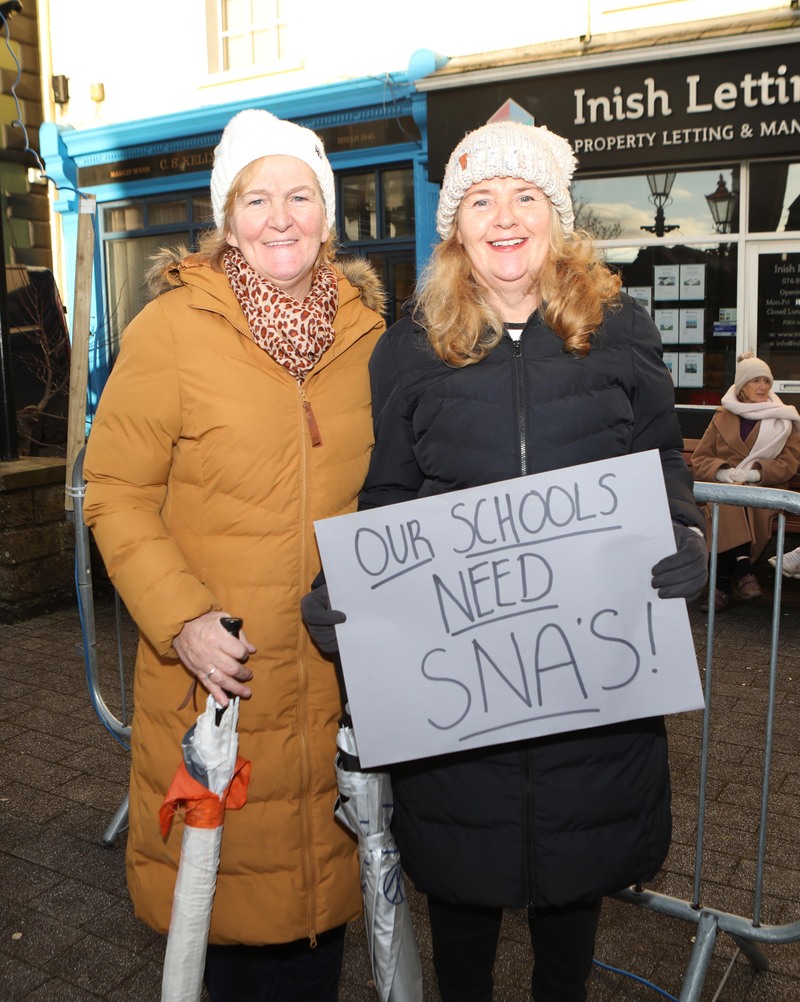 Inish Lettin
PROPERTY LETTING & MAN
C. S. KELLY
OUR SCHOOLS
NEED
SNA'S!
Inish
074-9
Open
Mon-Fri
Closed Lun